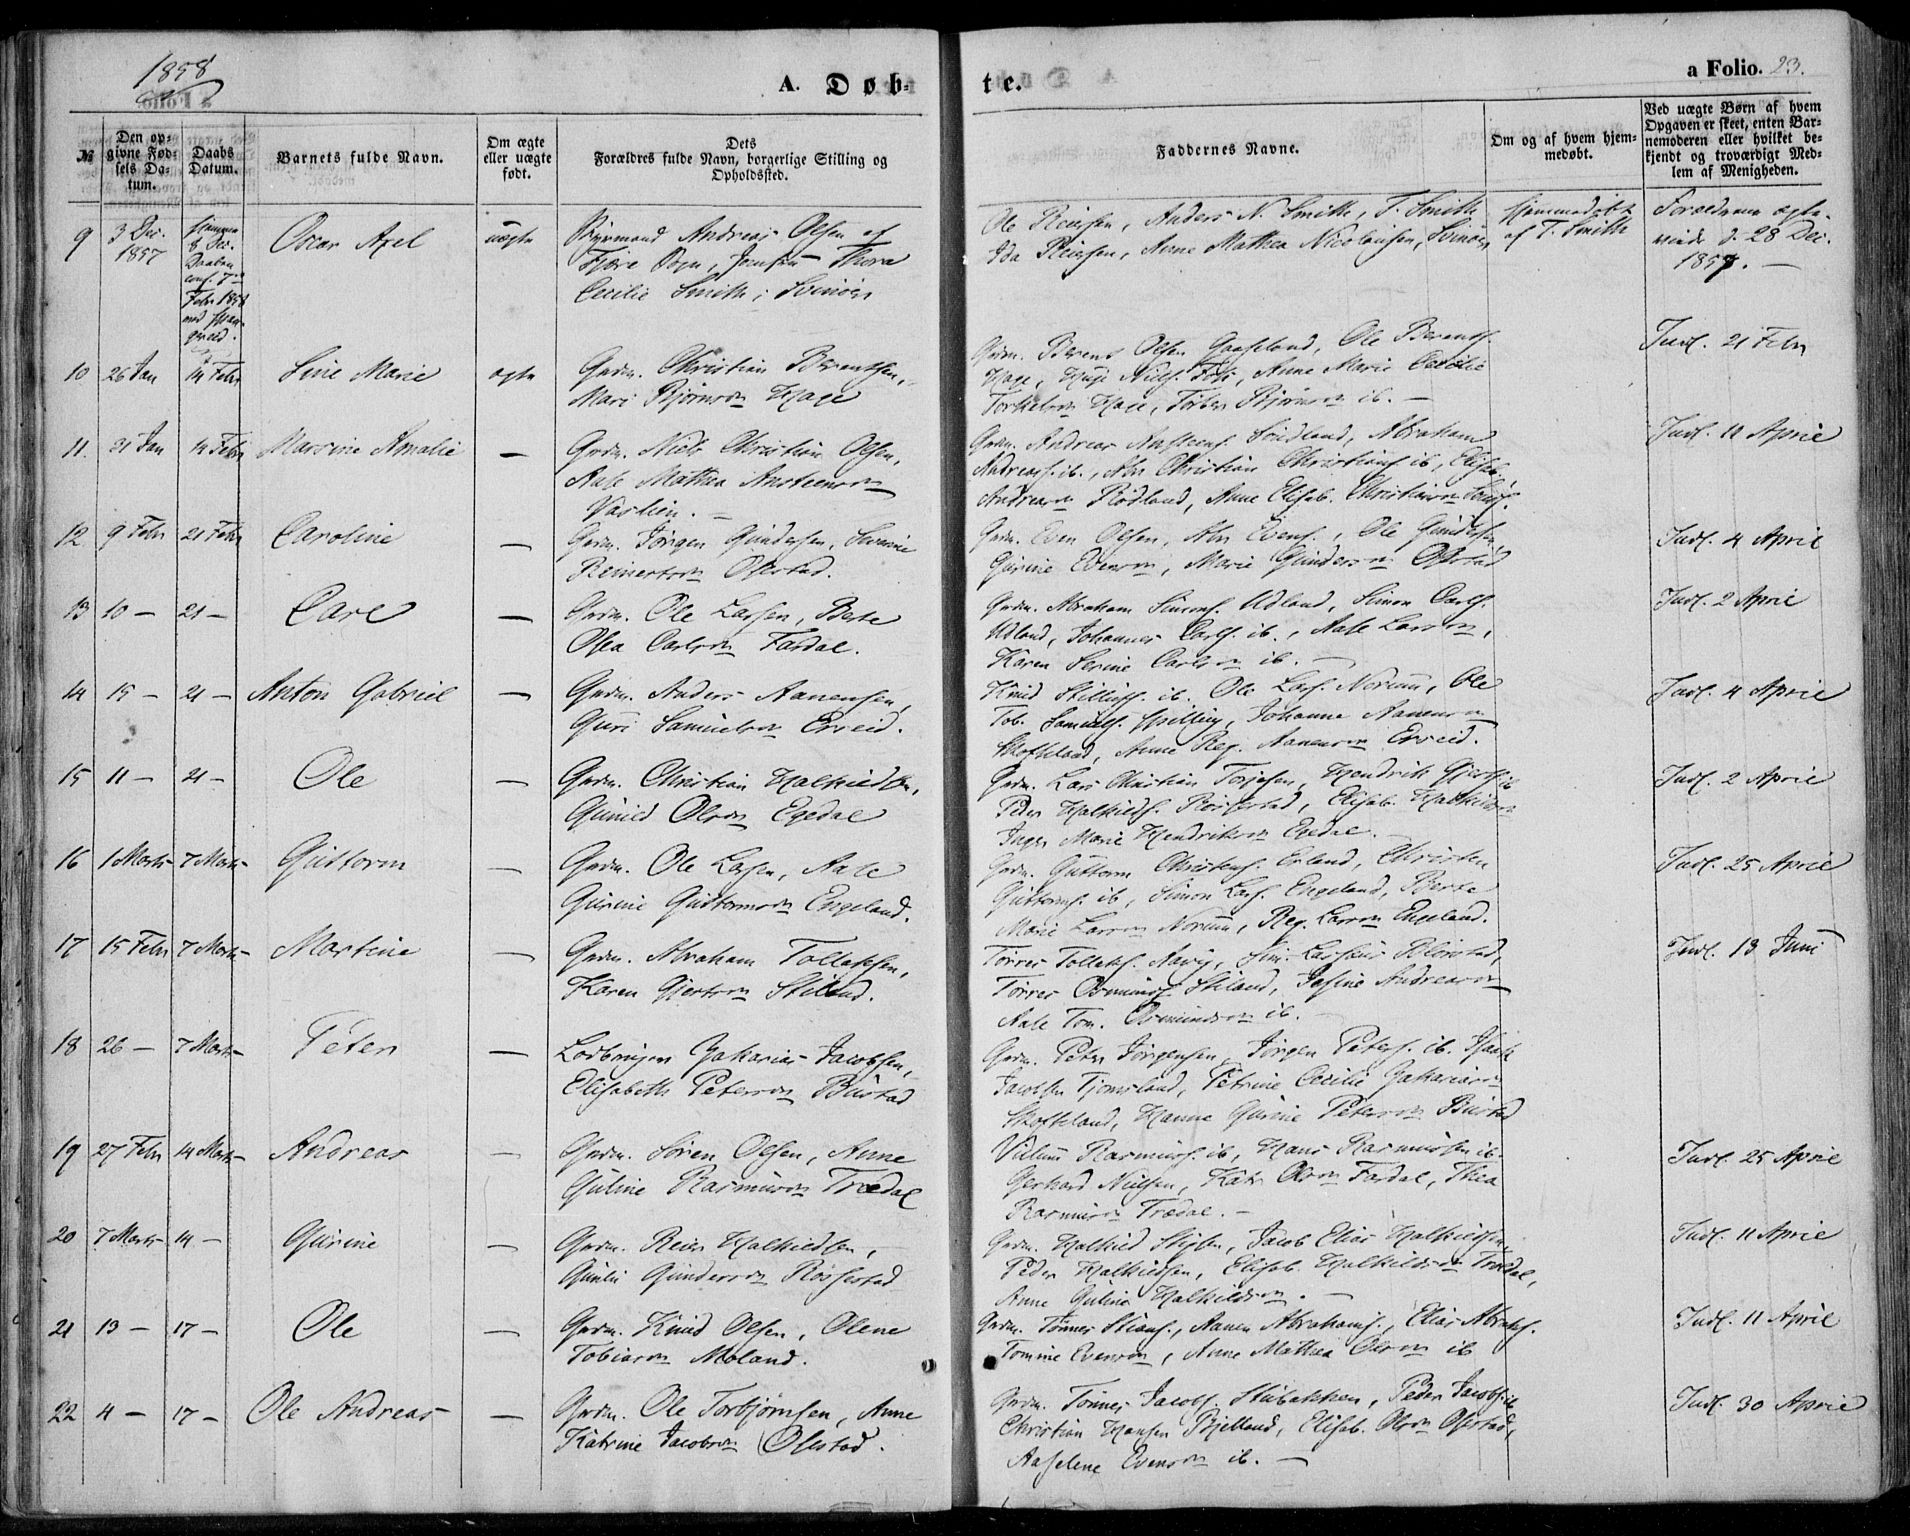 1858
A. Døb-
te.
a Folio. 23.
№
Den op-
givne Fød-
sels Da-
tum.
Daabs
Datum.
Barnets fulde Navn.
Om ægte
eller uægte
født.
Dets
Forældres fulde Navn, borgerlige Stilling og
Opholdssted.
Faddernes Navne.
Om og af hvem hjem-
medøbt.
Ved uægte Børn af hvem
Opgaven er skeet, enten Bar-
nemoderen eller hvilket be-
kjendt og troværdigt Med-
lem af Menigheden.
9
3 Dec.
1857
8 Dec.
Daaben
conf. 7
Febr 1858
Oscar Axel
uægte
Styrmand Andreas Olsen af
Fjære Sogn, Thora
Cecilie Smith, Svinør
Ole Reiersen, Anders N. Smith, T. Smith
Ida Reiersen, Anne Mathea Nicolaisen, Svinør
hjemmedøbt
af T. Smith
Forældrene ægte-
viede d. 28 Dec.
1857. —
10
26 Jan
14 Febr
Sine Marie
ægte
Grdm. Christian Berentsen,
Mari Bjørnsdn Hage
Grdm. Berent Olsen Gaaseland, Ole Berents.
Hage, Nils. Foss, Anne Marie Cecilie
Torkelsdn Hage, Bjørnsdn ib. —
Indl. 21 Febr
11.
31 Jan
14 Febr
Massine Amalie
—
Grdm. Niels Christian Olsen,
Aase Mathea Anstensdn
Vaslien. —
Grdm. Andreas Anstens. Sødland, Abraham
Andreas. ib., Christian Christians. ib, Elisab.
Andreasdn Rødland, Anne Elisab. Christiansdn
Indl. 11 April
12
9 Febr
21 Febr
Caroline
—
Grdm. Jørgen Gundersen, Severine
Reinertsdn Ofstad.
Grdm. Even Olsen, Abr Evens., Ole Gundersen,
Gurine Evensdn, Marie Gundersdn Ofstad
Indl. 4 April
13
10 —
21 —
Carl
—
Grdm. Ole Larsen, Berte
Olea Carlsdn Fardal.
Grdm. Abraham Simons. Udland, Simon Carls.
Udland, Johannes Carls. ib., Aase Larsdn,
Karen Serine Carlsdn ib. —
Indl. 2 April
14
15 —
21 —
Anton Gabriel
—
Grdm. Anders Aanensen,
Guri Samuelsdn Erveid.
Knud ib. Ole Lars. Nørum, Ole
Tob. Samuels. Johanne Aanensdn
Skofteland, Anne Reg. Aanensdn Erveid.
Indl. 4 April
15
11 —
21 —
Ole
—
Grdm. Christian Halkildsen,
Gunild Olsdn Egedal
Grdm. Lars Christian Terjesen, Hendrik Gjerts. ib
Peder Halkilds. Røisestad, Elisab. Halkildsdn
Inger Marie Hendriksdn Egedal. —
Indl. 2 April
16
1 Marts
7 Marts
Guttorm
—
Grdm. Ole Larsen, Aase
Gurine Guttormsdn Engeland.
Grdm. Guttorm Christens. Erland, Christen
Guttorms. ib, Simon Lars. Engeland, Berte
Marie Larsdn Nørum, Reg. Larsdn Engeland.
Indl. 25 April
17
15 Febr
7 Marts
Martine
—
Grdm. Abraham Tollaksen,
Karen Gjertsdn Stiland.
Tørres Tollaks. Aavig,
Tørres Osmunds. Stiland, Josine Andreasdn
Aase Tom. Osmundsdn ib. —
Indl. 13 Juni
18
26 —
7 Marts
Peter
—
Zakarias Jacobsen,
Elisabeth Petersdn Bustad
Grdm. Peter Jørgensen, Jørgen Peters. ib. Isaak
Jacobsen Tjomsland, Petrine Cecilie Zakariasdn
Skofteland, Hanne Gurine Petersdn Bustad
19
27 Febr
14 Marts
Andreas
—
Grdm. Søren Olsen, Anne
Guline Rasmusdn Trædal
Villum Rasmus. ib, Hans Rasmussen ib.
Gerhard Nielsen, Katr. Olsdn Fardal, Thea
Rasmusdn Trædal. —
Indl. 25 April
20
7 Marts
14 —
Gurine
—
Grdm. Reier Halkildsen,
Gunlu Gundersdn Røisestad
Grdm. Halkild Jacob Elias Halkildsen,
Peder Halkildsen, Elisab. Halkildsdn Trædal,
Anne Guline Halkildsdn. —
Indl. 11 April
21
13 —
17 —
Ole
—
Grdm. Knud Olsen, Olene
Tobiasdn Moland.
Grdm. Tønnes Aanen Abrahams., Elias Abrahs.
Tomine Evensdn, Anne Mathea Olsdn ib
Indl. 11 April
22
4 —
17 —
Ole Andreas
—
Grdm. Ole Torbjørnsen, Anne
Katrine Jacobsdn Ofestad.
Grdm. Tønnes Jacobs. Stubakken, Peder Jacobs. ib
Christian Hansen Bjelland, Elisab. Olsdn Ofstad,
Aaselene Evensdn ib. —
Indl. 30 April